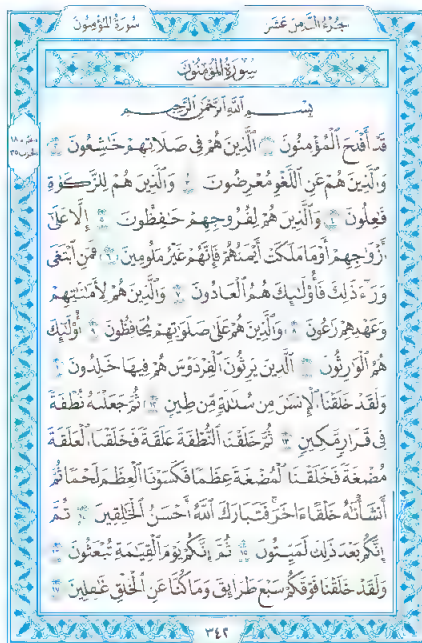 سُورَةُ المُؤْمِنُونَ
الجُزْءُ الثَّامِنَ عَشَرَ
سُورَةُ المُؤْمِنُونَ
بِسْمِ اللَّهِ الرَّحْمَٰنِ الرَّحِيمِ
قَدْ أَفْلَحَ الْمُؤْمِنُونَ ١ الَّذِينَ هُمْ فِي صَلَاتِهِمْ خَاشِعُونَ ٢
وَالَّذِينَ هُمْ عَنِ اللَّغْوِ مُعْرِضُونَ ٣ وَالَّذِينَ هُمْ لِلزَّكَوٰةِ
فَاعِلُونَ ٤ وَالَّذِينَ هُمْ لِفُرُوجِهِمْ حَافِظُونَ ٥ إِلَّا عَلَىٰ
أَزْوَاجِهِمْ أَوْ مَا مَلَكَتْ أَيْمَانُهُمْ فَإِنَّهُمْ غَيْرُ مَلُومِينَ ٦ فَمَنِ ابْتَغَىٰ
وَرَاءَ ذَٰلِكَ فَأُولَٰئِكَ هُمُ الْعَادُونَ ٧ وَالَّذِينَ هُمْ لِأَمَانَاتِهِمْ
وَعَهْدِهِمْ رَاعُونَ ٨ وَالَّذِينَ هُمْ عَلَىٰ صَلَوَاتِهِمْ يُحَافِظُونَ ٩ أُولَٰئِكَ
هُمُ الْوَارِثُونَ ١٠ الَّذِينَ يَرِثُونَ الْفِرْدَوْسَ هُمْ فِيهَا خَالِدُونَ ١١
وَلَقَدْ خَلَقْنَا الْإِنسَانَ مِن سُلَالَةٍ مِّن طِينٍ ١٢ ثُمَّ جَعَلْنَاهُ نُطْفَةً
فِي قَرَارٍ مَّكِينٍ ١٣ ثُمَّ خَلَقْنَا النُّطْفَةَ عَلَقَةً فَخَلَقْنَا الْعَلَقَةَ
مُضْغَةً فَخَلَقْنَا الْمُضْغَةَ عِظَامًا فَكَسَوْنَا الْعِظَامَ لَحْمًا ثُمَّ
أَنشَأْنَاهُ خَلْقًا آخَرَ فَتَبَارَكَ اللَّهُ أَحْسَنُ الْخَالِقِينَ ١٤ ثُمَّ
إِنَّكُم بَعْدَ ذَٰلِكَ لَمَيِّتُونَ ١٥ ثُمَّ إِنَّكُمْ يَوْمَ الْقِيَامَةِ تُبْعَثُونَ ١٦
وَلَقَدْ خَلَقْنَا فَوْقَكُمْ سَبْعَ طَرَائِقَ وَمَا كُنَّا عَنِ الْخَلْقِ غَافِلِينَ ١٧
٣٤٢